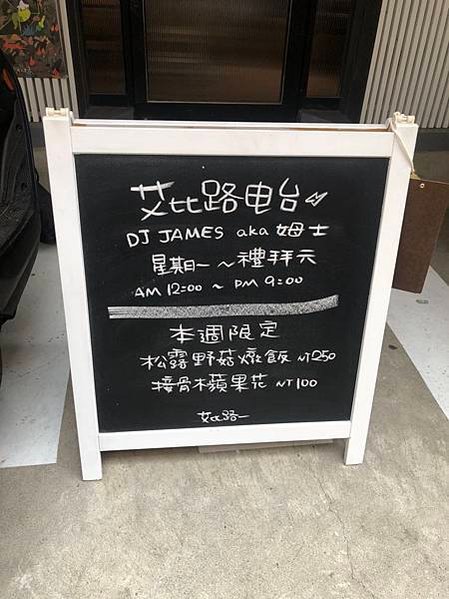 艾比路电台
DJ JAMES aka 姆士
星期一 ~ 禮拜元
AM 12:00 ~ PM 9:00
本週限定
松露野菇燉飯 NT250
接骨木蘋果花 NT100
艾比路一